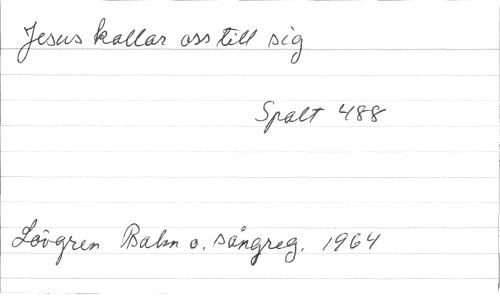 Jesus kallar oss till sig
Spalt 488
Lövgren Psalm o. sångreg. 1964